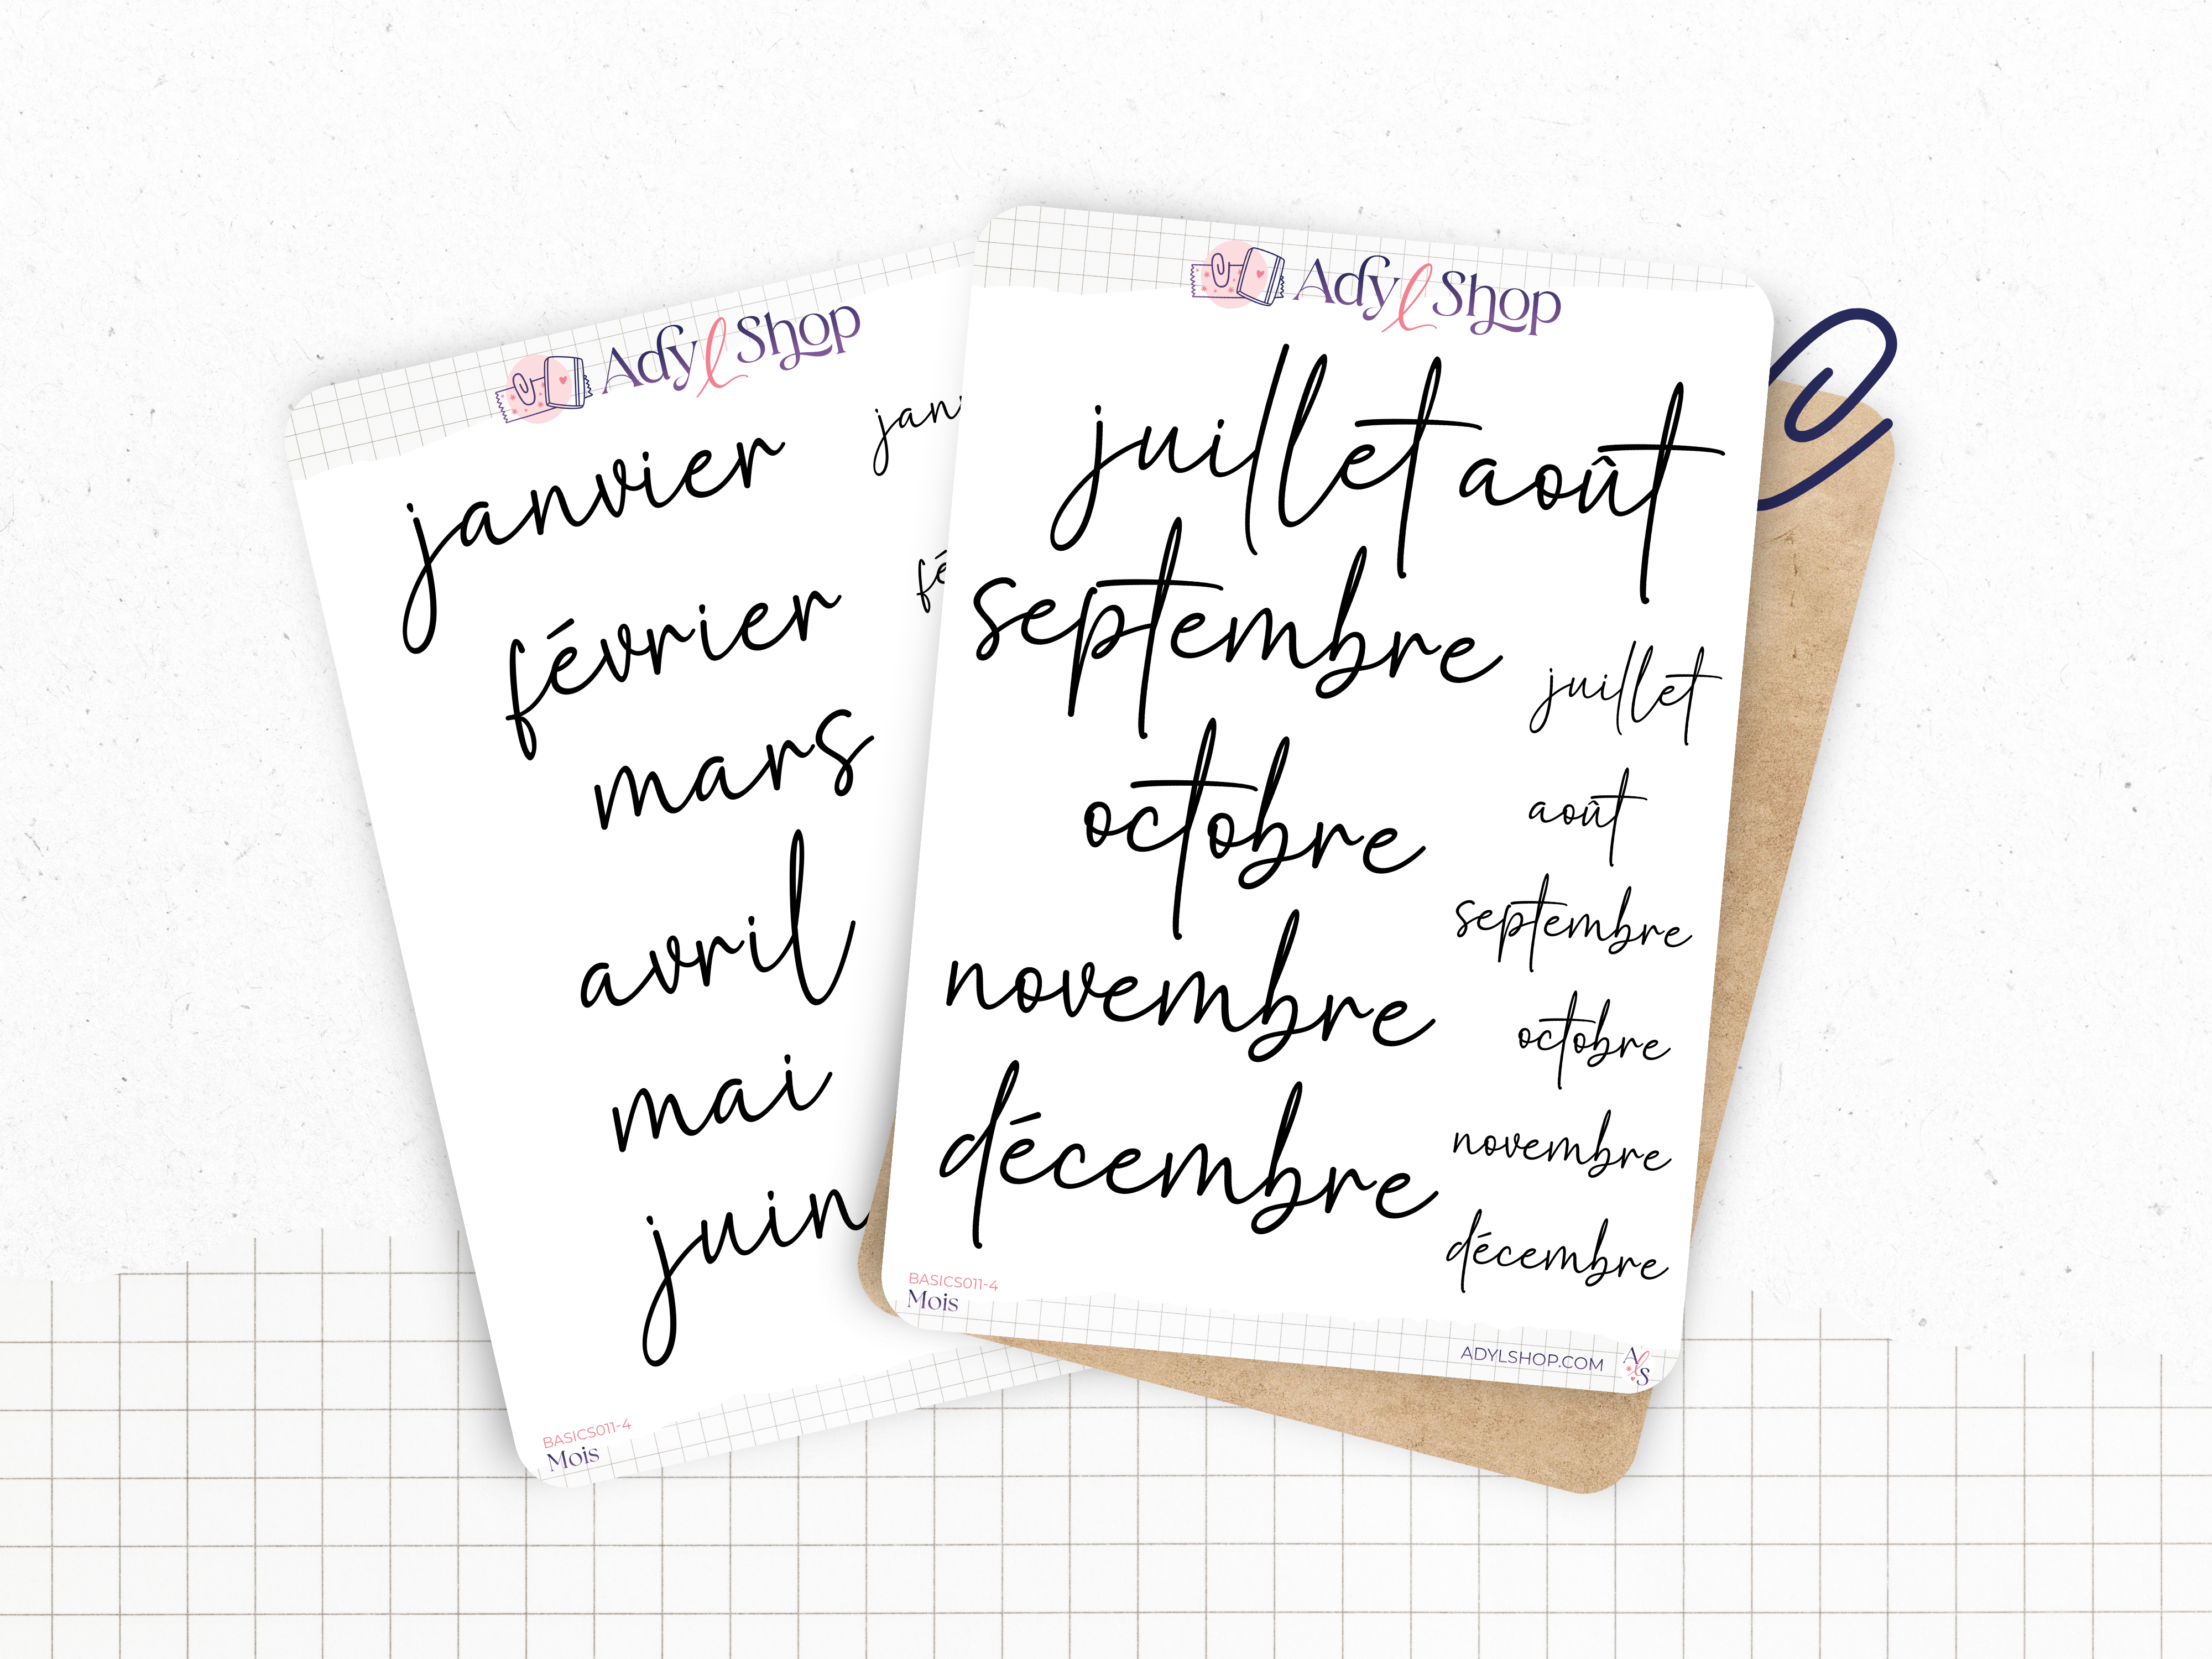 Ady l Shop
janvier
février
mars
avril
mai
juin
BASICS011-4
Mois
Ady l Shop
juillet août
septembre
octobre
novembre
décembre
juillet
août
septembre
octobre
novembre
décembre
BASICS011-4
Mois
ADYLSHOP.COM
AlS